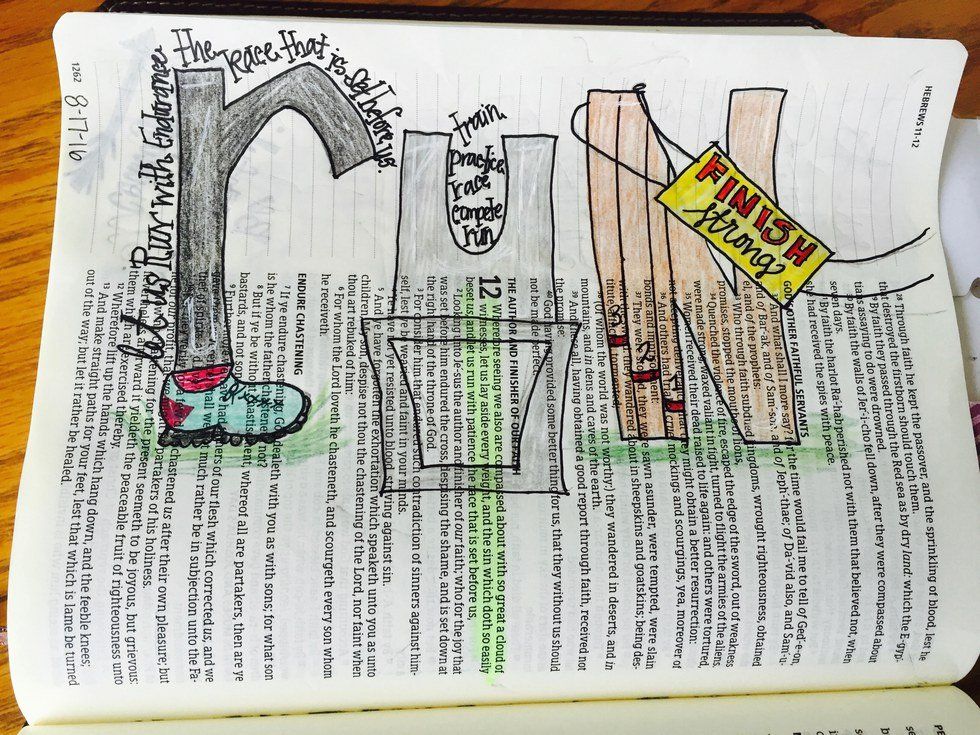 HEBREWS 11-12
1262
8-17-16
us run with endurance
the race that is set before us.
train
practice
race
compete
run
FINISH
strong
28 Through faith he kept the passover, and the sprinkling of blood, lest he
that destroyed the firstborn should touch them.
29 By faith they passed through the Red sea as by dry land: which the E-gyp-
tians assaying to do were drowned.
30 By faith the walls of Jer'-i-cho fell down, after they were compassed about
seven days.
31 By faith the harlot Ra'-hab perished not with them that believed not, when
she had received the spies with peace.
OTHER FAITHFUL SERVANTS
32 And what shall I more say? for the time would fail me to tell of Ged'-e-on,
and of Bar'-ak, and of Sam'-son, and of Jeph'-thae; of Da'-vid also, and Sam'-u-
el, and of the prophets:
33 Who through faith subdued kingdoms, wrought righteousness, obtained
promises, stopped the mouths of lions,
34 Quenched the violence of fire, escaped the edge of the sword, out of weakness
were made strong, waxed valiant in fight, turned to flight the armies of the aliens.
received their dead raised to life again: and others were tortured,
they might obtain a better resurrection:
36 And others had trial of mockings and scourgings, yea, moreover of
bonds and imprisonment:
37 They were sawn asunder, were tempted, were slain
they wandered about in sheepskins and goatskins; being des-
of whom the world was not worthy:) they wandered in deserts, and in
mountains, and in dens and caves of the earth.
39 And these all, having obtained a good report through faith, received not
the promise:
40 God having provided some better thing for us, that they without us should
not be made perfect.
THE AUTHOR AND FINISHER OF OUR FAITH
12 Wherefore seeing we also are compassed about with so great a cloud of
witnesses, let us lay aside every weight, and the sin which doth so easily
beset us, and let us run with patience the race that is set before us,
2 Looking unto Je-sus the author and finisher of our faith; who for the joy that
was set before him endured the cross, despising the shame, and is set down at
the right hand of the throne of God.
3 For consider him that endured such contradiction of sinners against him-
self, lest ye be wearied and faint in your minds.
4 Ye have not yet resisted unto blood, striving against sin.
5 And ye have forgotten the exhortation which speaketh unto you as unto
children, My son, despise not thou the chastening of the Lord, nor faint when
thou art rebuked of him:
6 For whom the Lord loveth he chasteneth, and scourgeth every son whom
he receiveth.
ENDURE CHASTENING
7 If ye endure chastening, God dealeth with you as with sons; for what son
is he whom the father chasteneth not?
8 But if ye be without chastisement, whereof all are partakers, then are ye
bastards, and not sons.
9 Furthermore we have fathers of our flesh which corrected us, and we
shall we not much rather be in subjection unto the Fa-
ther of spirits,
chastened us after their own pleasure; but
partakers of his holiness.
chastening for the present seemeth to be joyous, but grievous:
afterward it yieldeth the peaceable fruit of righteousness unto
them which are exercised thereby.
12 Wherefore lift up the hands which hang down, and the feeble knees;
13 And make straight paths for your feet, lest that which is lame be turned
out of the way; but let it rather be healed.